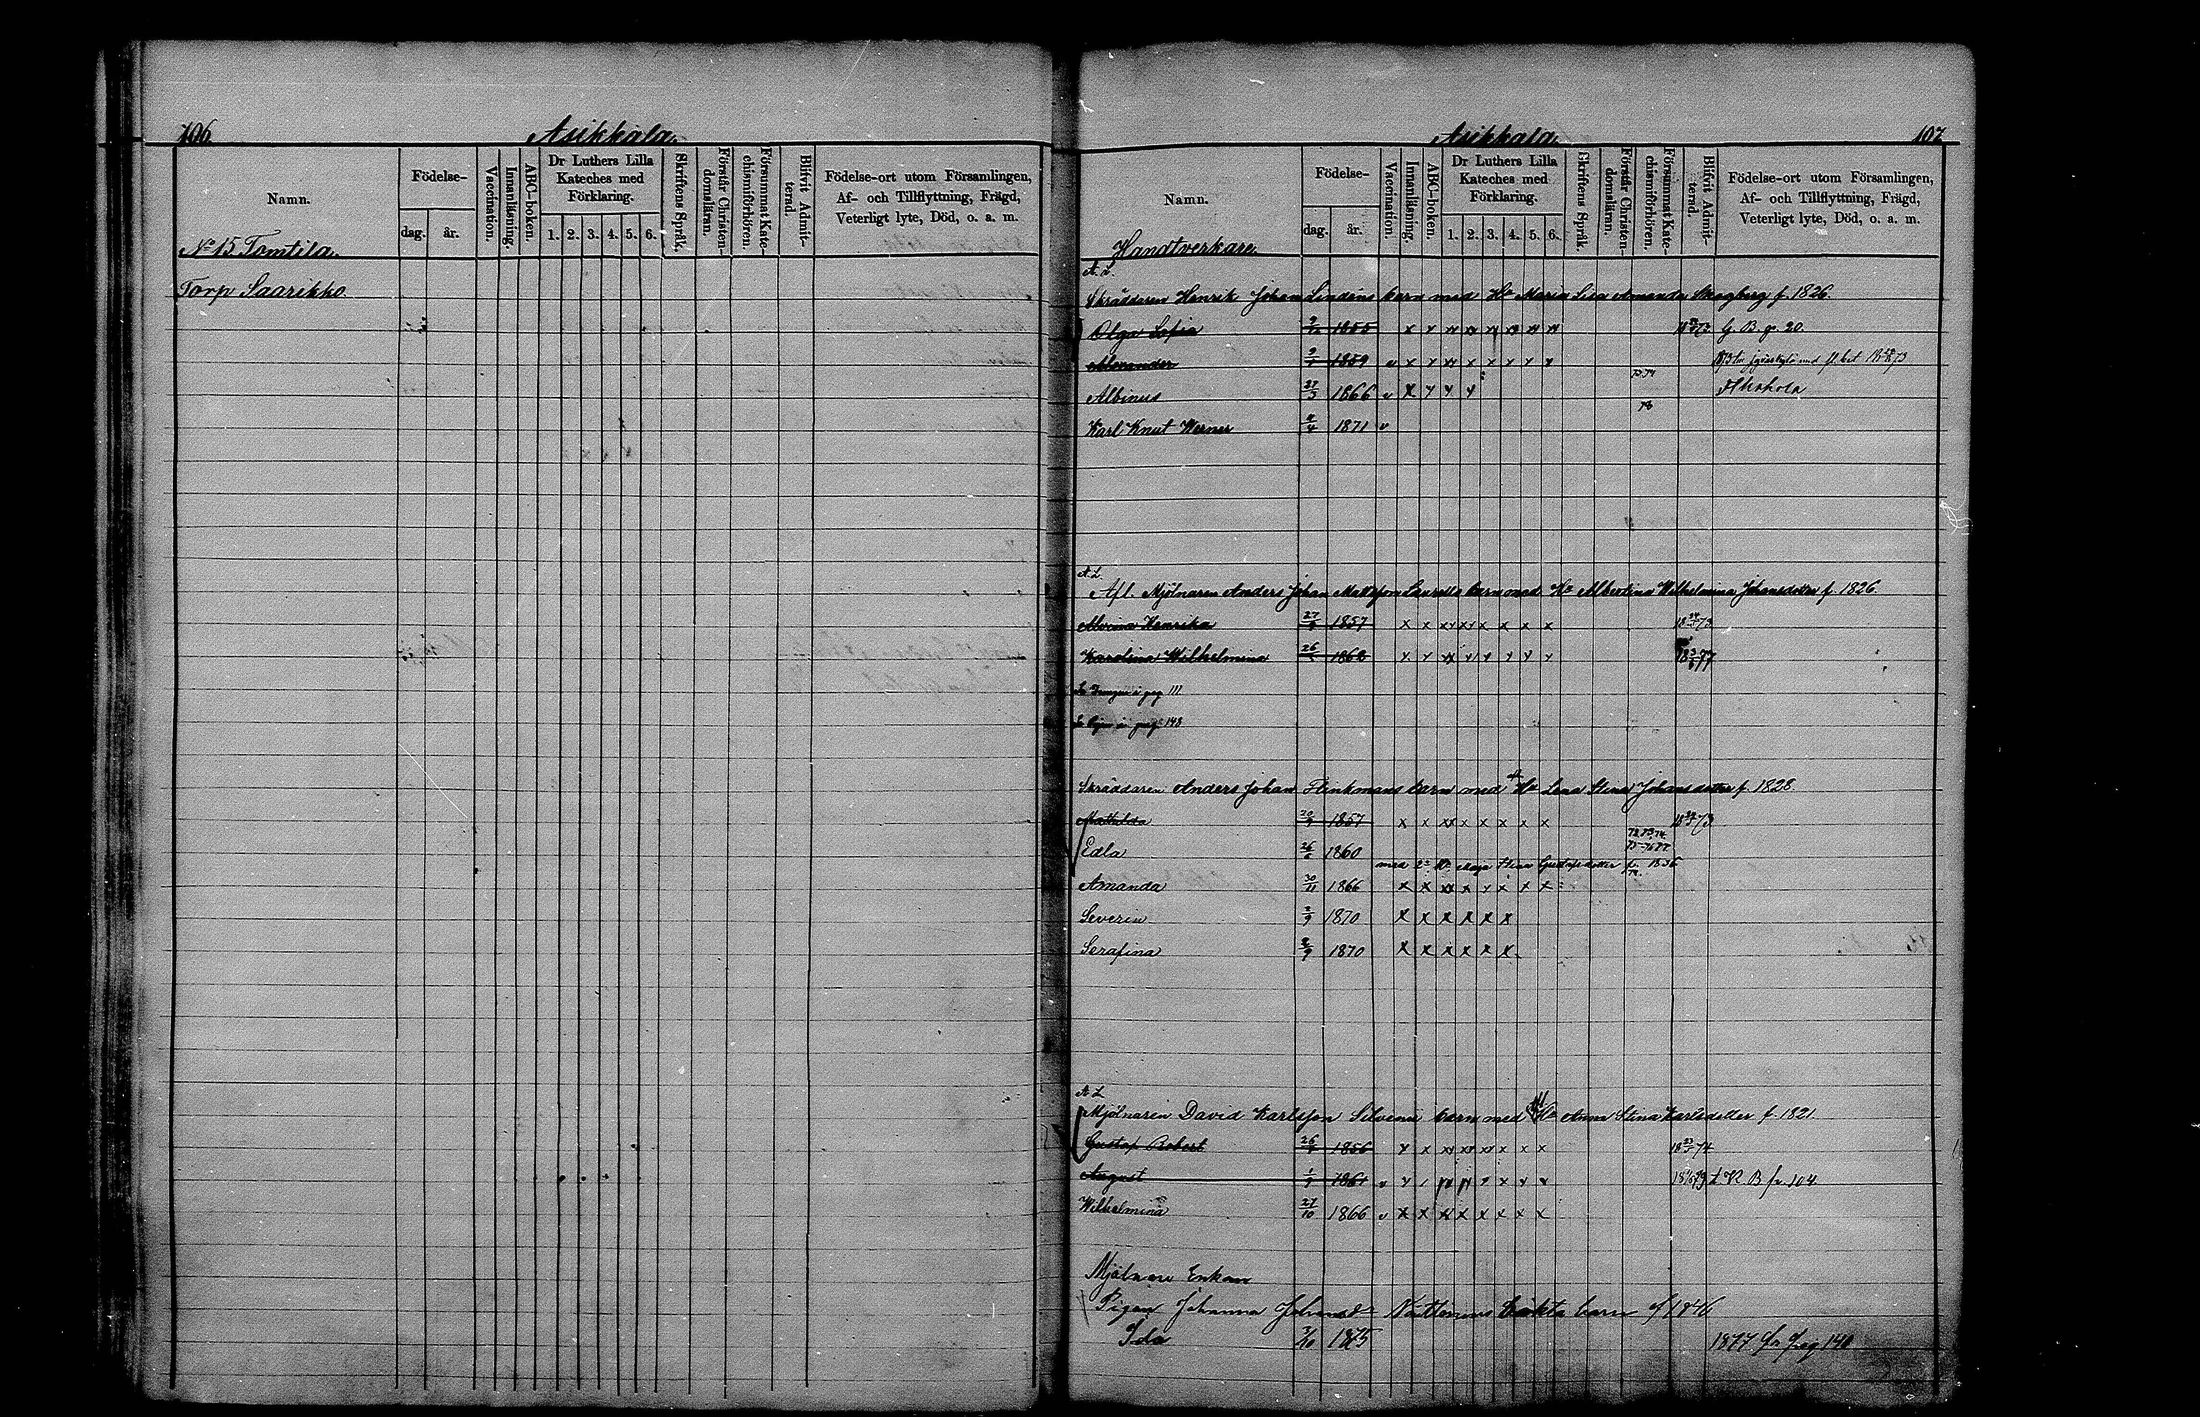 106.
Asikkala.
Namn.
Födelse-
dag. år.
Vaccination.
Innanläsning.
ABC-boken.
Dr Luthers Lilla Kateches med Förklaring.
1. 2. 3. 4. 5. 6.
Skriftens Språk.
Förstår Christendomsläran.
Försummat Katechismiförhören.
Blifvit Admitterad.
Födelse-ort utom Församlingen,
Af- och Tillflyttning, Frägd,
Veterligt lyte, Död, o. a. m.
No 15 Tomtila.
Torp Saarikko
Asikkala.
107
Namn.
Födelse-
dag. år.
Vaccination.
Innanläsning.
ABC-boken.
Dr Luthers Lilla Kateches med Förklaring.
1. 2. 3. 4. 5. 6.
Skriftens Språk.
Förstår Christendomsläran.
Försummat Katechismiförhören.
Blifvit Admitterad.
Födelse-ort utom Församlingen,
Af- och Tillflyttning, Frägd,
Veterligt lyte, Död, o. a. m.
Handtverkare.
Skräddaren Henrik Johan Lindéns barn med Ha Maria Lisa Amanda Skogberg f. 1826.
Olga Sofia 1855 x x x x x x x x G. B. p. 20.
Alexander 1859 v x x x x x x x x
Albinus 27/3 1866 v x x x x
Karl Knut Werner 1871 v
Afl. Mjölnaren Anders Johan Mattsson Laurells barn med Ha Albertina Wilhelmina Johansdotter f. 1826.
Henrika 1857 x x x x x x x x
Karolina Wilhelmina 1862 x x x x x x x x
pag 111
pag 148
Skräddaren Anders Johan Flinkmans barn med Ha Lena Stina Johansdotter f. 1828
Mathilda 1857 x x x x x x x x
Edla 1860
med 2a Ha Maja Stina Gustafsdotter f. 1836
Amanda 30/11 1866 x x x x x x x x
Severin 2/9 1870 x x x x x x
Serafina 2/9 1870 x x x x x x
Mjölnaren David Karlsson Silvens barn med Ha Anna Stina Karlsdotter f. 1821
Gustaf Robert 1856 x x x x x x x x
August 1861 v
Wilhelmina 27/10 1866 v x x x x x x x x
Mjölnare Enkan
Pigan Johanna barn f 1846
Ida 3/10 1875 1877 fr pag 140